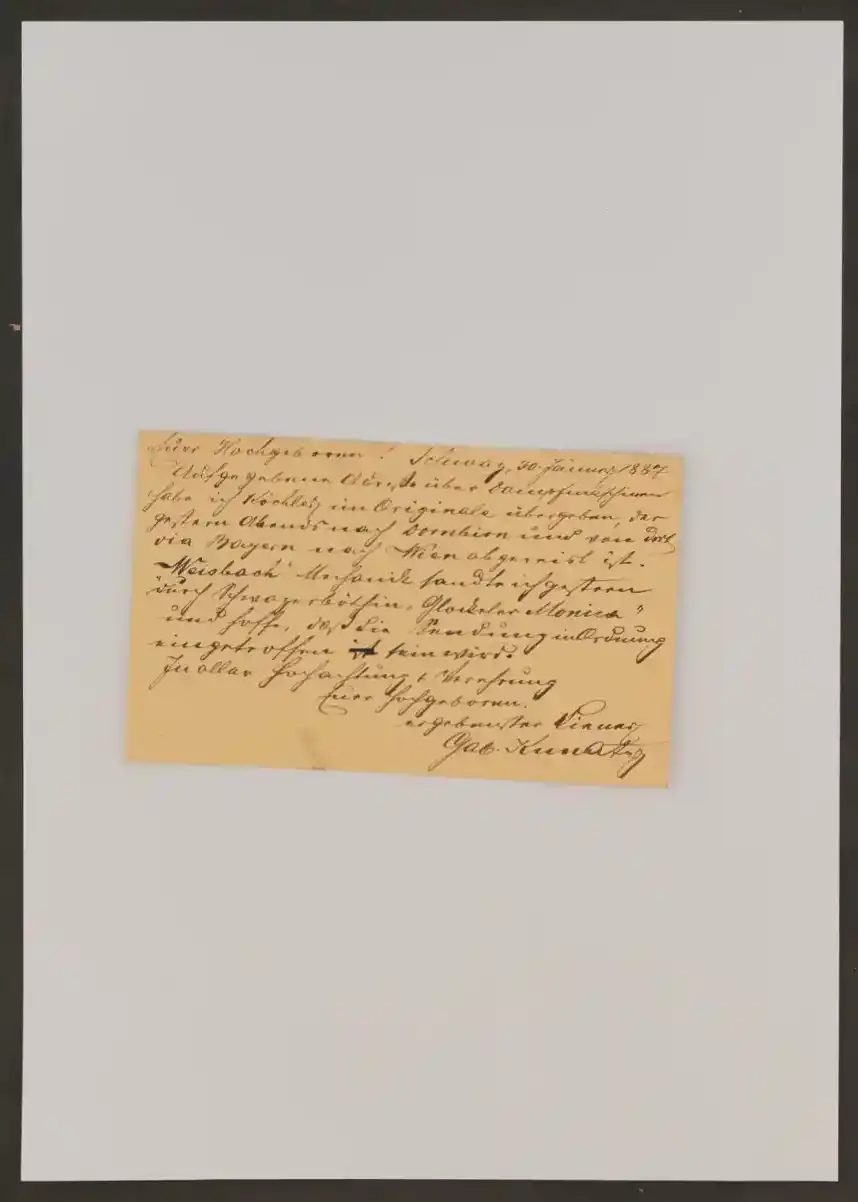 Euer Hochgeboren! Schwaz, 30. Jänner 1887
Aufgegebene Adresse über Dampfmaschinen
habe ich im Originale übergeben, der
gestern Abends nach Dornbirn und von dort
via Bayern nach Wien abgereist ist.
"Weisbach" Mechanik sandte ich gestern
durch Schwazerböthin, "Glockeler Monica"
und hoffe, daß die Sendung in Ordnung
eingetroffen ist sein wird.
In aller Hochachtung & Verehrung
Euer Hochgeboren.
ergebenster Diener
Gab.